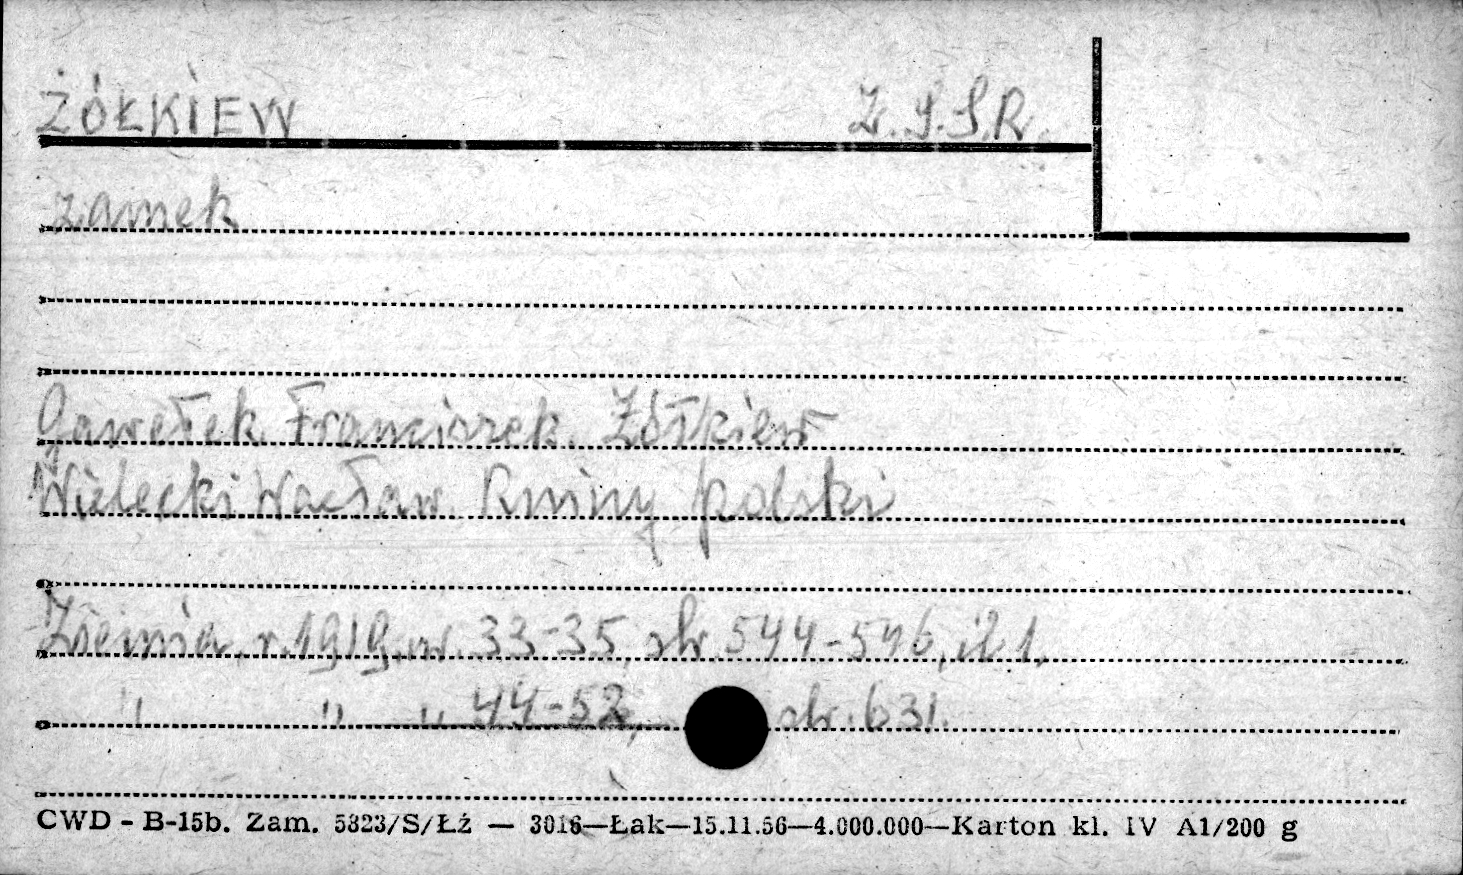 ŻÓŁKIEW Z.S.S.R.
zamek
Gawełek Franciszek. Żółkiew
Wielecki Wacław. Ruiny polski
Ziemia, r. 1919, nr. 33-35, str. 544-546, il 1.
" " " 44-52, str. 631.
CWD - B-15b. Zam. 5823/S/Łź — 3016—Łak—15.11.56—4.000.000—Karton kl. IV A1/200 g